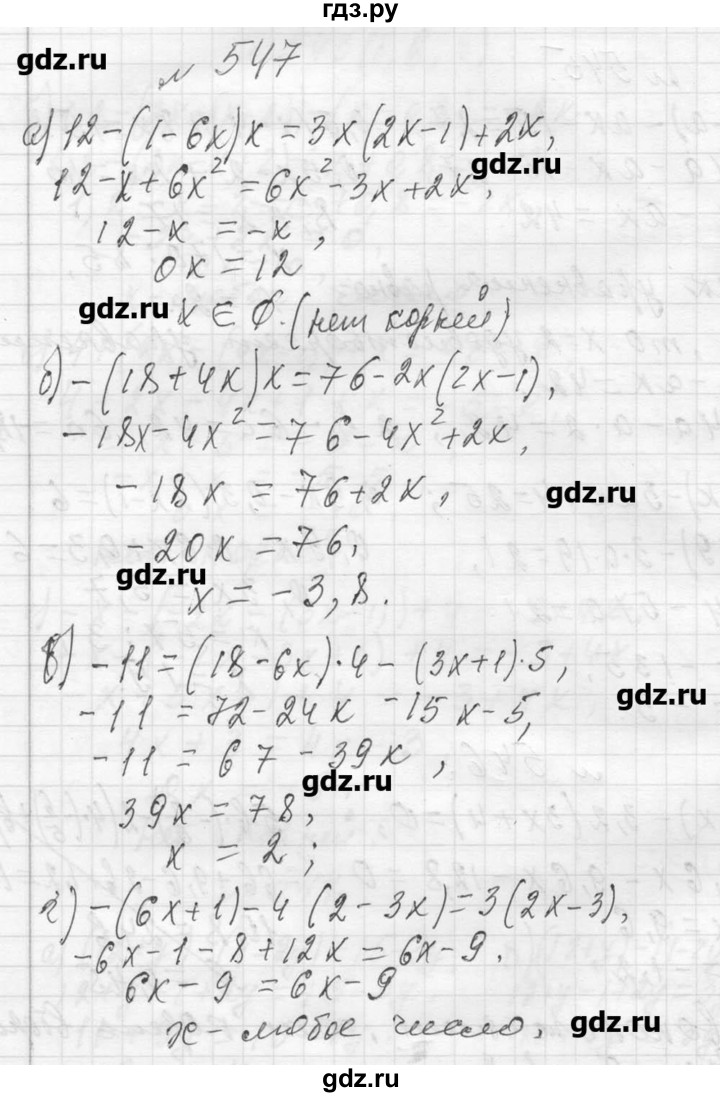 гдз.ру
gdz.ru
№ 547
а) 12-(1-6x)x=3x(2x-1)+2x,
gdz.ru
12-x+6x²=6x²-3x+2x,
12-x=-x,
0x=12
gdz.ru
x∈Ø.(нет корней)
б) -(18+4x)x=76-2x(2x-1),
-18x-4x²=76-4x²+2x,
gdz.ru
-18x=76+2x,
gdz.ru
-20x=76,
gdz.ru
x=-3,8.
в) -11=(18-6x)·4-(3x+1)·5,
gdz.ru
-11=72-24x-15x-5,
-11=67-39x,
gdz.ru
39x=78,
x=2;
г) -(6x+1)-4(2-3x)=3(2x-3),
-6x-1-8+12x=6x-9.
6x-9=6x-9
x-любое число,
gdz.ru
gdz.ru